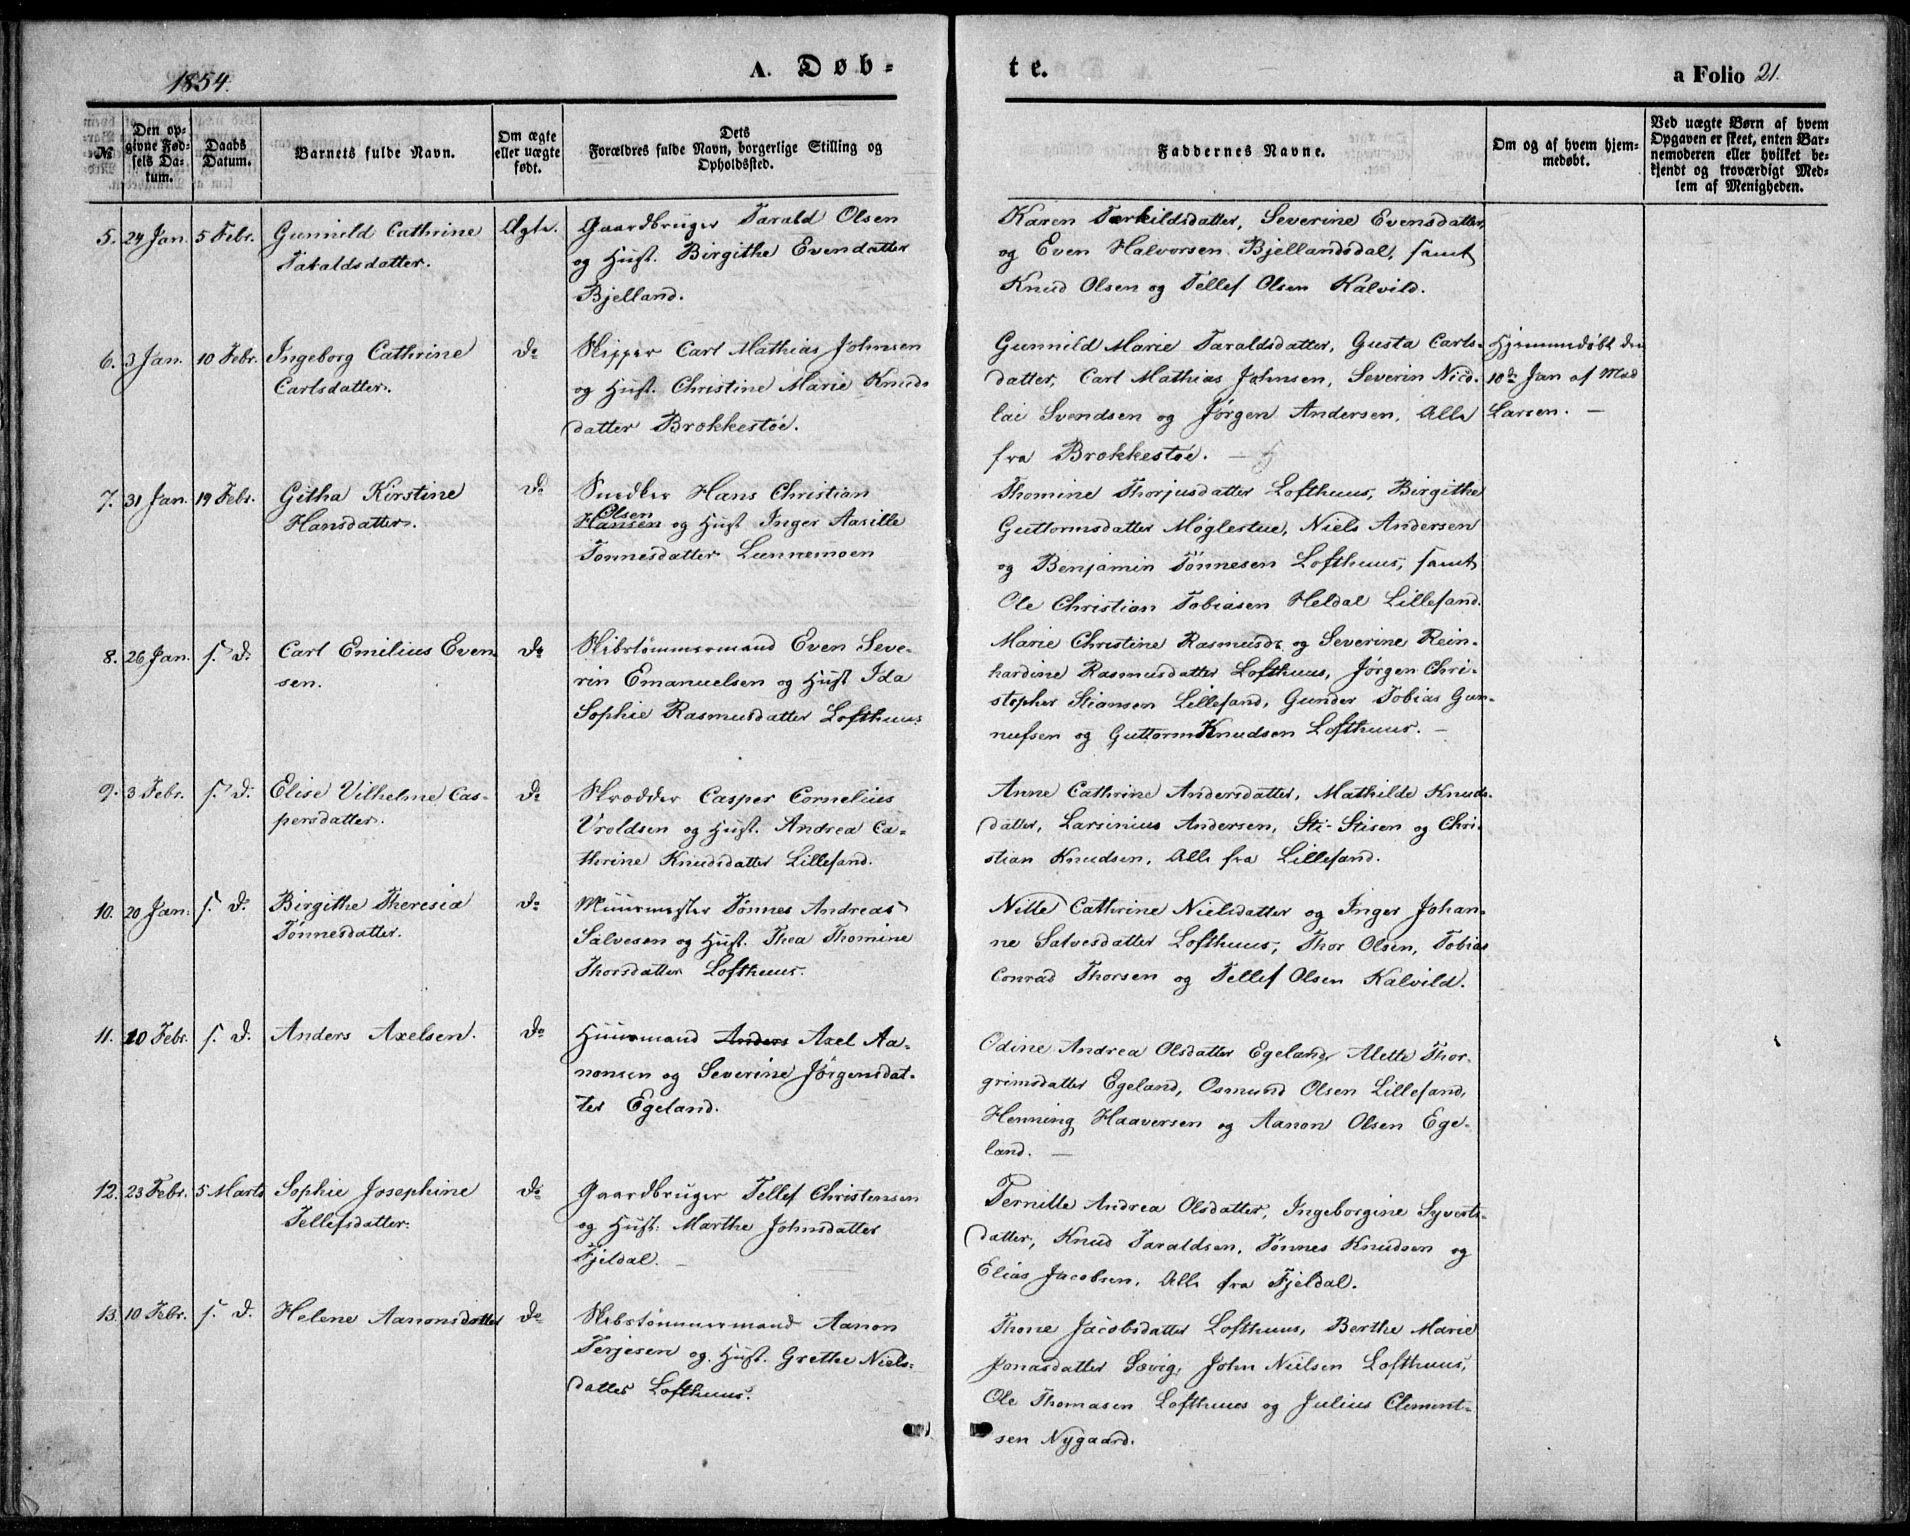 1854.
A. Døb-
te.
a Folio 21.
№
Den op-
givne Fød-
sels Da-
tum.
Daabs
Datum.
Barnets fulde Navn.
Om ægte
eller uægte
født.
Dets
Forældres fulde Navn, borgerlige Stilling og
Opholdsted.
Faddernes Navne.
Om og af hvem hjem-
medøbt.
Ved uægte Børn af hvem
Opgaven er skeet, enten Bar-
nemoderen eller hvilket be-
kjendt og troværdigt Med-
lem af Menigheden.
5. 24 Jan. 5 Febr. Gunnild Cathrine
Taraldsdatter.
Ægte.
Gaardbruger Tarald Olsen
og Hust. Birgithe Evendatter
Bjelland.
Karen Tærkildsdatter, Severine Evensdatter,
og Even Halvorsen Bjellandsdal, samt
Knud Olsen og Tellef Olsen Kalvild.
6. 3 Jan. 10 Febr. Ingeborg Cathrine
Carlsdatter.
do
Skipper Carl Mathias Johnsen
og Hust. Christine Marie Knuds
datter Brokkestøe.
Gunnild Marie Taraldsdatter, Gusta Carls-
datter, Carl Mathias Johnsen, Severin Nico-
lai Svendsen og Jørgen Andersen, Alle
fra Brokkestøe. –
Hjemmedøbt den
10de Jan af Mad
Larsen. –
7. 31 Jan. 19 Febr. Githa Kirstine
Hansdatter.
do
Snedker Hans Christian
Olsen
Hansen og Hust Inger Aasille
Tønnesdatter Lunnemoen
Thomine Thorjusdatter Lofthuus, Birgithe
Guttormsdatter Møglestue, Niels Andersen
og Benjamin Tønnesen Lofthuus, samt
Ole Christian Tobiasen Heldal Lillesand.
8. 26 Jan. s. d. Carl Emilius Even
sen.
do
Skibstømmermand Even Seve-
rin Emanuelsen og Hust Ida
Sophie Rasmusdatter Lofthuus
Marie Christine Rasmusdr og Severine Rein-
hardine Rasmusdatter Lofthuus, Jørgen Chri-
stopher Stiansen Lillesand, Gunder Tobias Gun-
nufsen og Guttorm Knudsen Lofthuus. –
9. 3 Febr. s. d. Elise Vilhelme Cas-
persdatter.
do
Skrædder Casper Cornelius
Vroldsen og Hust. Andrea Ca-
thrine Knudsdatter Lillesand.
Anne Cathrine Andersdatter, Mathilde Knuds-
datter, Larsinius Andersen, Sti Stisen og Chri-
stian Knudsen, Alle fra Lillesand.
10. 20 Jan. s. d. Birgithe Theresia
Tønnesdatter.
do
Muurmester Tønnes Andreas
Salvesen og Hust. Thea Thomine
Thorsdatter Lofthuus.
Nille Cathrine Nielsdatter og Inger Johan-
ne Salvesdatter Lofthuus, Thor Olsen, Tobias
Conrad Thorsen og Tellef Olsen Kalvild.
11. 10 Febr. s. d. Anders Axelsen.
do
Huusmand Anders Axel Aa-
nonsen og Severine Jørgensdat-
ter Egeland.
Odine Andrea Olsdatter Egeland, Alette Thor-
grimsdatter Egeland, Osmund Olsen Lillesand,
Henning Haaversen og Aanon Olsen Ege-
land. –
12. 23 Febr. 5 Marts Sophie Josephine
Tellefsdatter.
do
Gaardbruger Tellef Christensen
og Hust. Marthe Johnsdatter
Fjeldal. –
Pernille Andrea Olsdatter, Ingeborgine Syverts-
datter, Knud Taraldsen, Tønnes Knudsen og
Elias Jacobsen, Alle fra Fjeldal.
13. 10 Febr. s. d. Helene Aanonsdatter
do
Skibstømmermand Aanon
Terjesen og Hust. Grethe Niels-
datter Lofthuus.
Thone Jacobsdatter Lofthuus, Berthe Marie
Jonasdatter Søvig, John Nielsen Lofthuus,
Ole Thomasen Lofthuus og Julius Clement-
sen Nygaard.